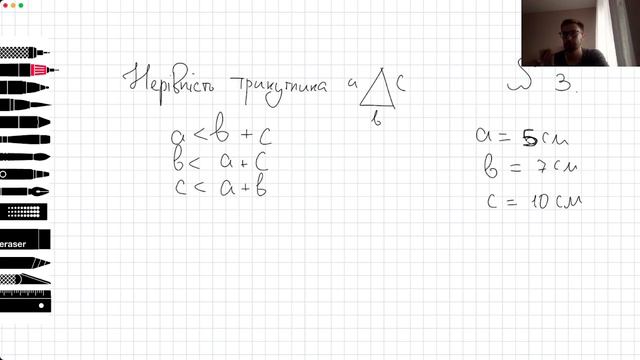 Нерівність трикутника a c № 3.
b
a < b + c a = 5 см
b < a + c b = 7 см
c < a + b c = 10 см
eraser